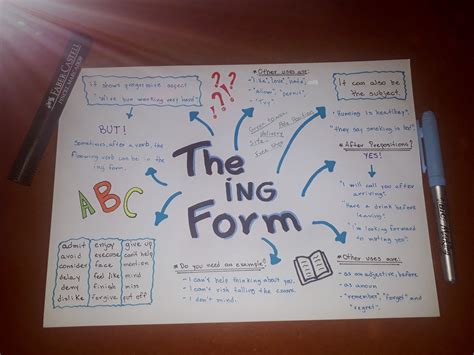 FABER CASTELL
It shows progressive aspect
"We've been working very hard"
BUT!
Sometimes, after a verb, the
following verb can be in the
ing form.
ABC
admit enjoy give up
avoid excercise can't help
consider face mention
delay feel like mind
deny finish miss
dislike forgive put off
???
* Other uses are:
"allow", "permit",
"Try"
Site
The
ING
Form
* Do you need an example?
- I can't help thinking about you.
- I can't risk falling the course.
- I don't mind.
It can also be
the subject
"Running is healthy".
* After Prepositions?
YES!
- "I will call you after
arriving".
- "Have a drink before
leaving".
* Other uses are:
- as an adjective, before
- as a noun
- "remember", "forget" and
"regret".